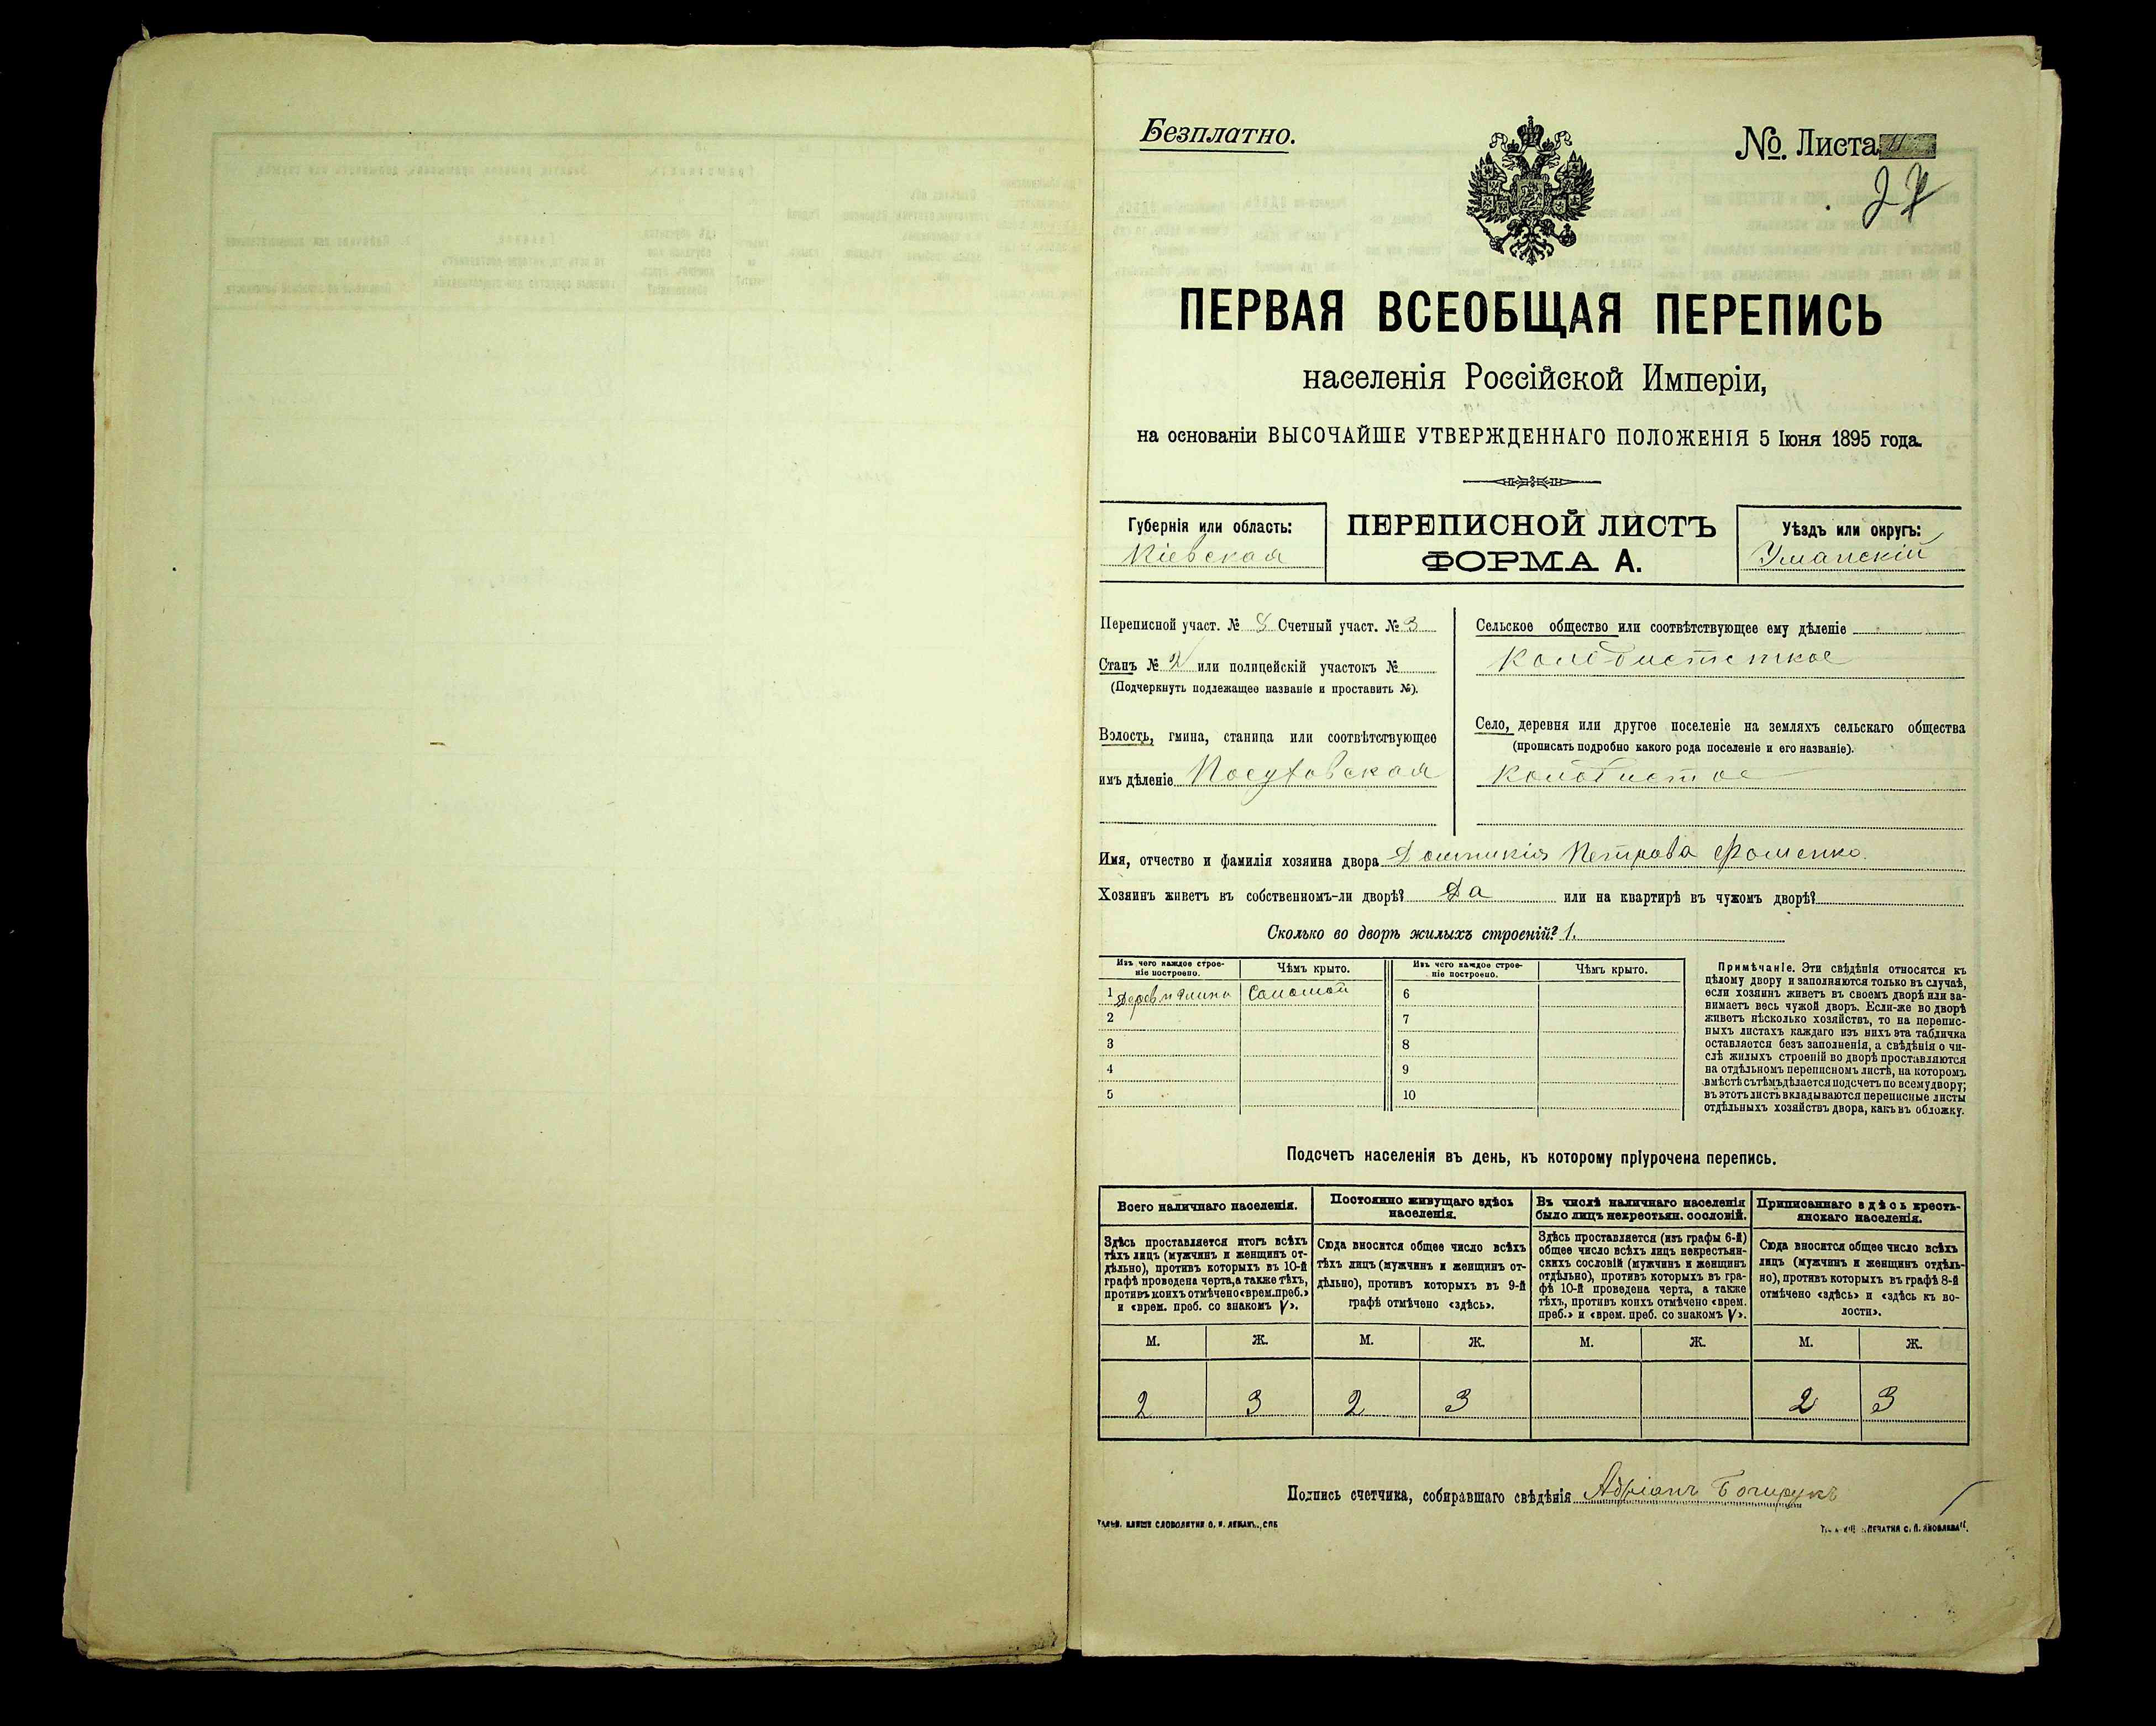 Безплатно.
№ Листа
27
ПЕРВАЯ ВСЕОБЩАЯ ПЕРЕПИСЬ
населенія Россійской Имперіи,
на основаніи ВЫСОЧАЙШЕ УТВЕРЖДЕННАГО ПОЛОЖЕНІЯ 5 Іюня 1895 года.
Губернія или область:
Кіевская
ПЕРЕПИСНОЙ ЛИСТЪ
ФОРМА А.
Уѣздъ или округъ:
Уманскій
Переписной участ. № 8 Счетный участ. № 3
Станъ № 2 или полицейскій участокъ №
(Подчеркнуть подлежащее названіе и проставить №).
Волость, гмина, станица или соотвѣтствующее
имъ дѣленіе Посуховская
Сельское общество или соотвѣтствующее ему дѣленіе
Село, деревня или другое поселеніе на земляхъ сельскаго общества
(прописать подробно какого рода поселеніе и его названіе).
Колодистое
Имя, отчество и фамилія хозяина двора Домникія Петрова Фоменко.
Хозяинъ живетъ въ собственномъ-ли дворѣ? Да или на квартирѣ въ чужомъ дворѣ?
Сколько во дворѣ жилыхъ строеній? 1.
Изъ чего каждое строе-
ніе построено.
Чѣмъ крыто.
Изъ чего каждое строе-
ніе построено.
Чѣмъ крыто.
1 Соломой 6
2 7
3 8
4 9
5 10
Примѣчаніе. Эти свѣдѣнія относятся къ
цѣлому двору и заполняются только въ случаѣ,
если хозяинъ живетъ въ своемъ дворѣ или за-
нимаетъ весь чужой дворъ. Если-же во дворѣ
живетъ нѣсколько хозяйствъ, то на перепис-
ныхъ листахъ каждаго изъ нихъ эта табличка
оставляется безъ заполненія, а свѣдѣнія о чи-
слѣ жилыхъ строеній во дворѣ проставляются
на отдѣльномъ переписномъ листѣ, на которомъ
вмѣстѣ съ тѣмъ дѣлается подсчетъ по всему двору;
въ этотъ листъ вкладываются переписные листы
отдѣльныхъ хозяйствъ двора, какъ въ обложку.
Подсчетъ населенія въ день, къ которому пріурочена перепись.
Всего наличнаго населенія.
Здѣсь проставляется итогъ всѣхъ
тѣхъ лицъ (мужчинъ и женщинъ от-
дѣльно), противъ которыхъ въ 10-й
графѣ проведена черта, а также тѣхъ,
противъ коихъ отмѣчено «врем. преб.»
и «врем. преб. со знакомъ V».
Постоянно живущаго здѣсь
населенія.
Сюда вносится общее число всѣхъ
тѣхъ лицъ (мужчинъ и женщинъ от-
дѣльно), противъ которыхъ въ 9-й
графѣ отмѣчено «здѣсь».
Въ числѣ наличнаго населенія
было лицъ некрестьян. сословій.
Здѣсь проставляется (изъ графы 6-й)
общее число всѣхъ лицъ некрестьян-
скихъ сословій (мужчинъ и женщинъ
отдѣльно), противъ которыхъ въ гра-
фѣ 10-й проведена черта, а также
тѣхъ, противъ коихъ отмѣчено «врем.
преб.» и «врем. преб. со знакомъ V».
Приписаннаго здѣсь кресть-
янскаго населенія.
Сюда вносится общее число всѣхъ
лицъ (мужчинъ и женщинъ отдѣль-
но), противъ которыхъ въ графѣ 8-й
отмѣчено «здѣсь» и «здѣсь къ во-
лости».
М. Ж. М. Ж. М. Ж. М. Ж.
2 3 2 3 2 3
Подпись счетчика, собиравшаго свѣдѣнія Адріанъ